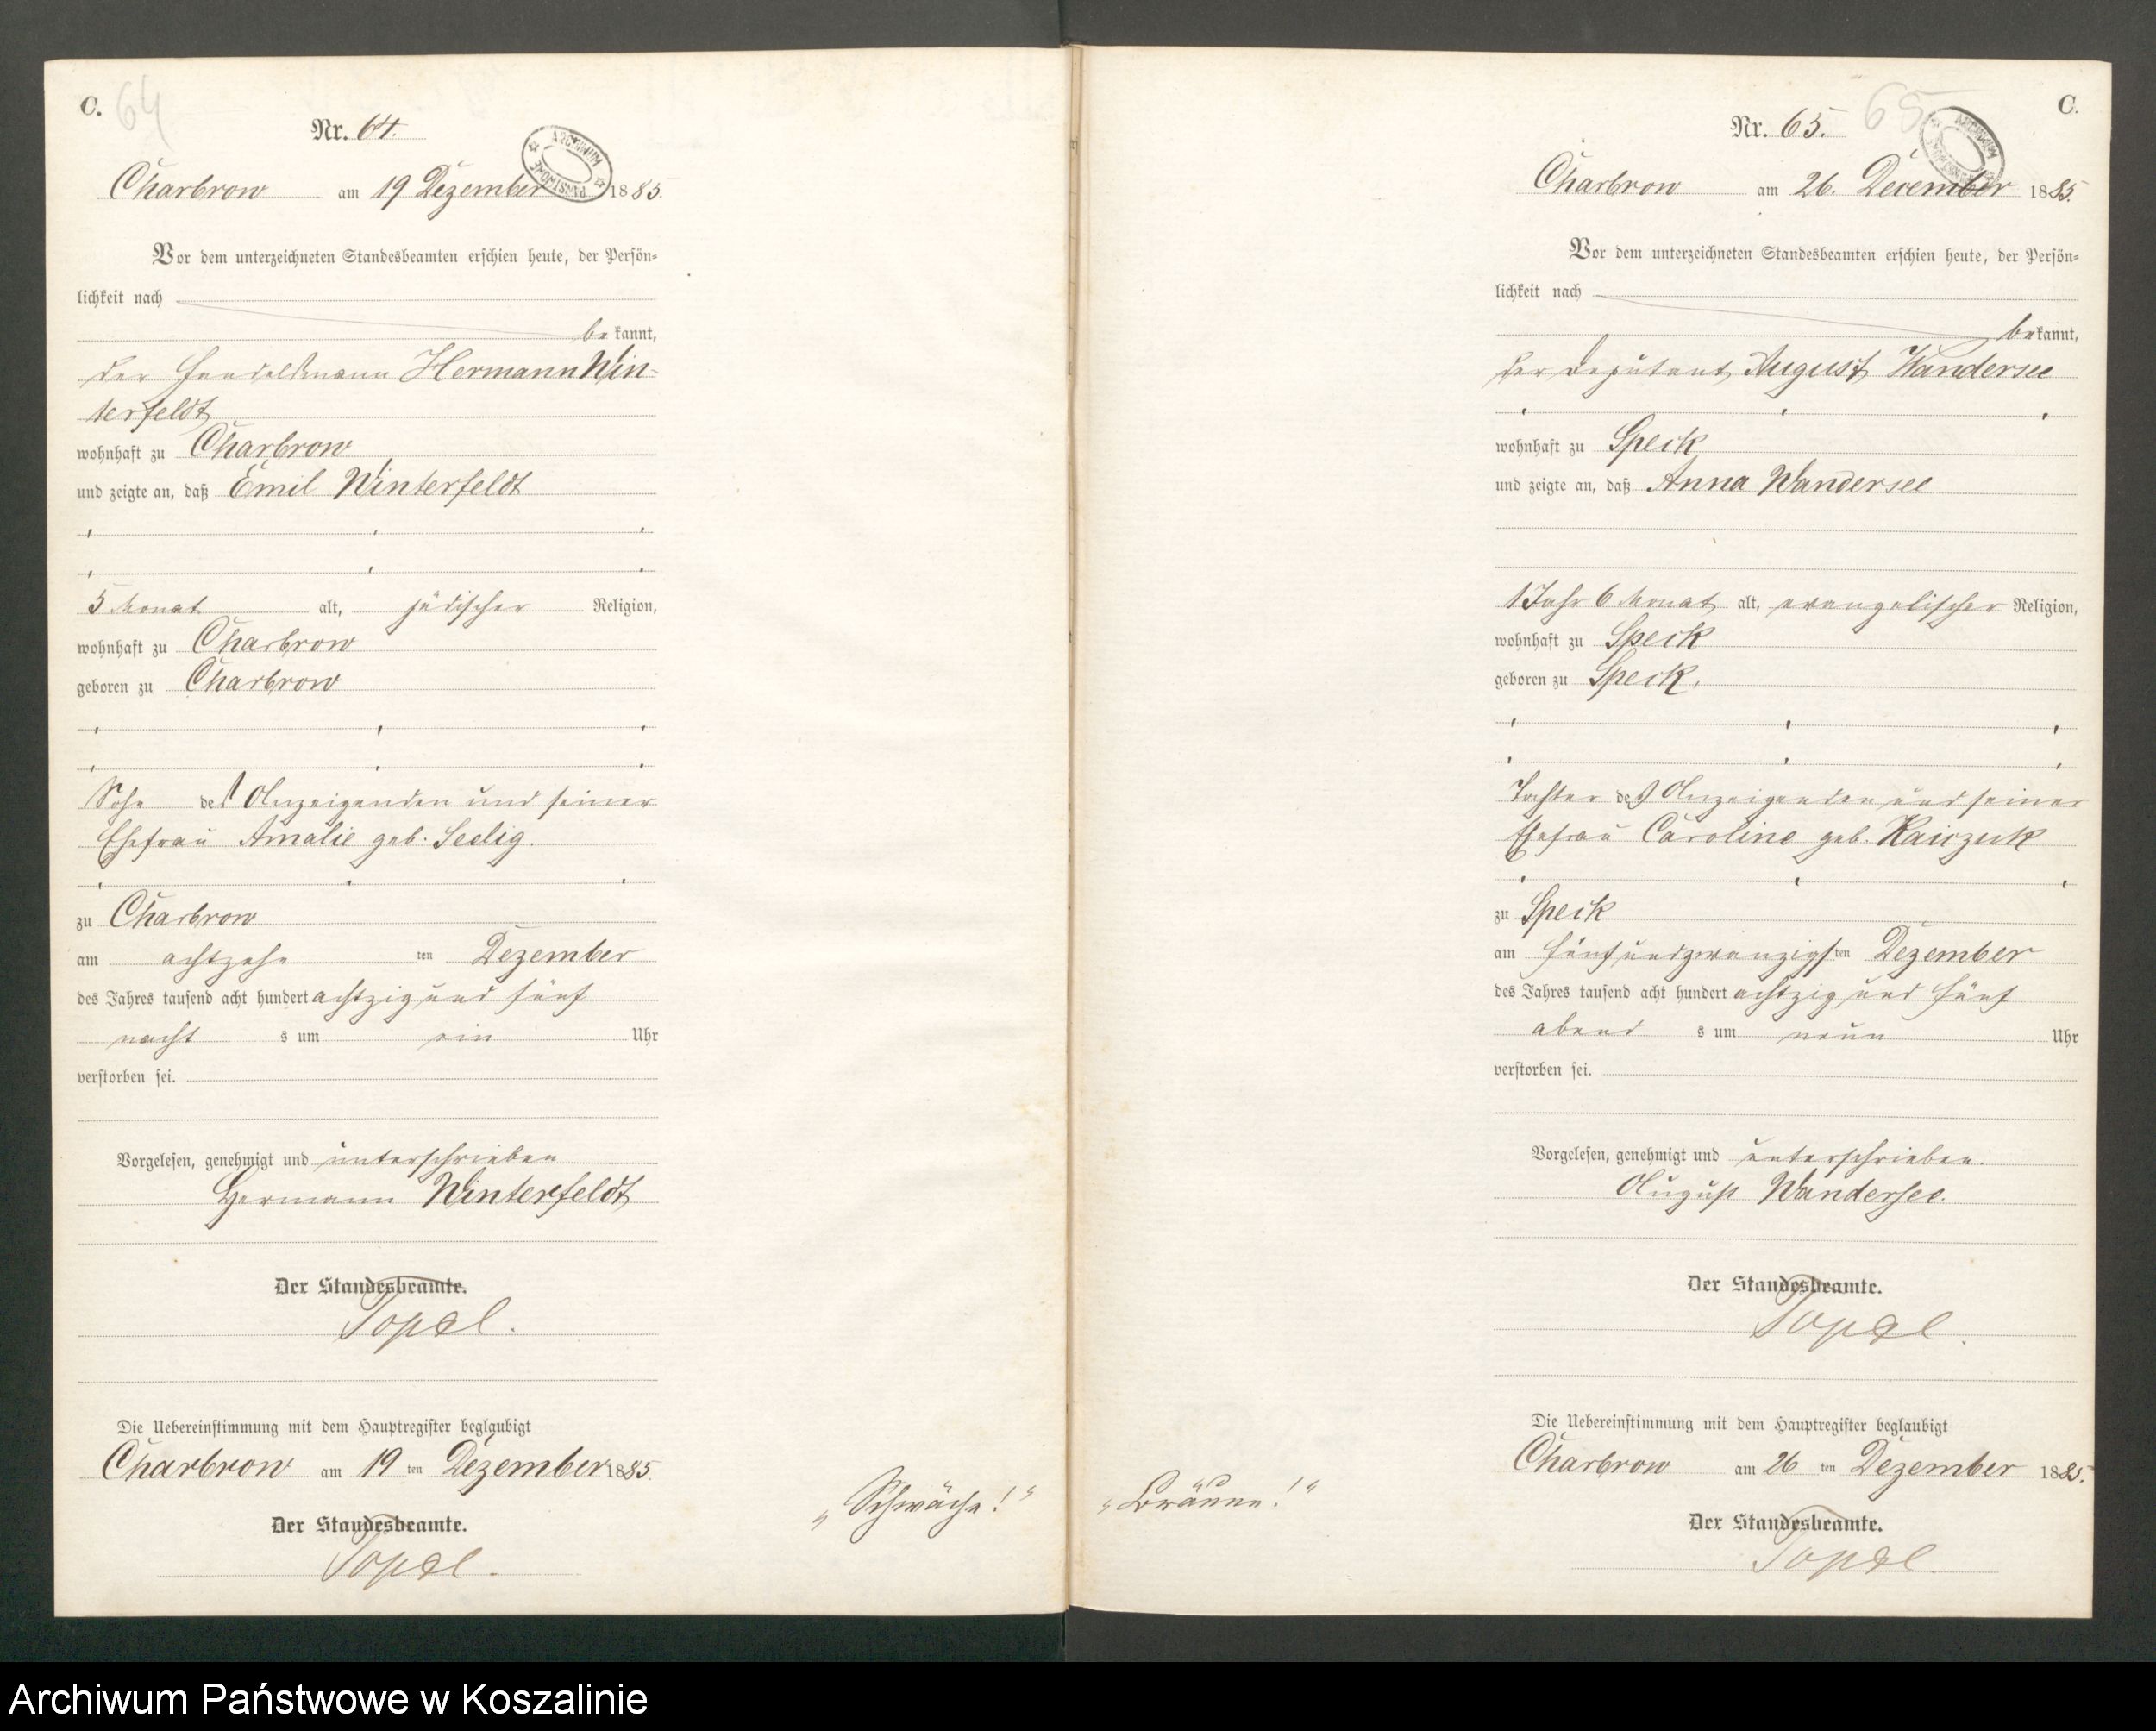 C. 64
Nr. 64.
ARCHIWUM PAŃSTWOWE
Charbrow am 19 Dezember 1885.
Vor dem unterzeichneten Standesbeamten erschien heute, der Persön-
lichkeit nach
bekannt,
der Handelsmann Hermann Win-
terfeldt
wohnhaft zu Charbrow
und zeigte an, daß Emil Winterfeldt
5 Monat alt, jüdischer Religion,
wohnhaft zu Charbrow
geboren zu Charbrow
Sohn des Anzeigenden und seiner
Ehefrau Amalie geb. Seelig.
zu Charbrow
am achtzehn ten Dezember
des Jahres tausend acht hundert achtzig und fünf
nacht s um ein Uhr
verstorben sei.
Vorgelesen, genehmigt und unterschrieben
Hermann Winterfeldt
Der Standesbeamte.
Die Uebereinstimmung mit dem Hauptregister beglaubigt
Charbrow am 19 ten Dezember 1885.
Der Standesbeamte.
„Schwäche!“
C.
65
Nr. 65.
ARCHIWUM PAŃSTWOWE
Charbrow am 26. December 1885.
Vor dem unterzeichneten Standesbeamten erschien heute, der Persön-
lichkeit nach
bekannt,
der Deputant August Wandersee
wohnhaft zu Speck
und zeigte an, daß Anna Wandersee
1 Jahr 6 Monat alt, evangelischer Religion,
wohnhaft zu Speck
geboren zu Speck.
Tochter des Anzeigenden und seiner
Ehefrau Caroline geb.
zu Speck
am fünfundzwanzigsten Dezember
des Jahres tausend acht hundert achtzig und fünf
abend s um neun Uhr
verstorben sei.
Vorgelesen, genehmigt und unterschrieben.
August Wandersee.
Der Standesbeamte.
Die Uebereinstimmung mit dem Hauptregister beglaubigt
Charbrow am 26 ten Dezember 1885.
Der Standesbeamte.
„Bräune!“
Archiwum Państwowe w Koszalinie